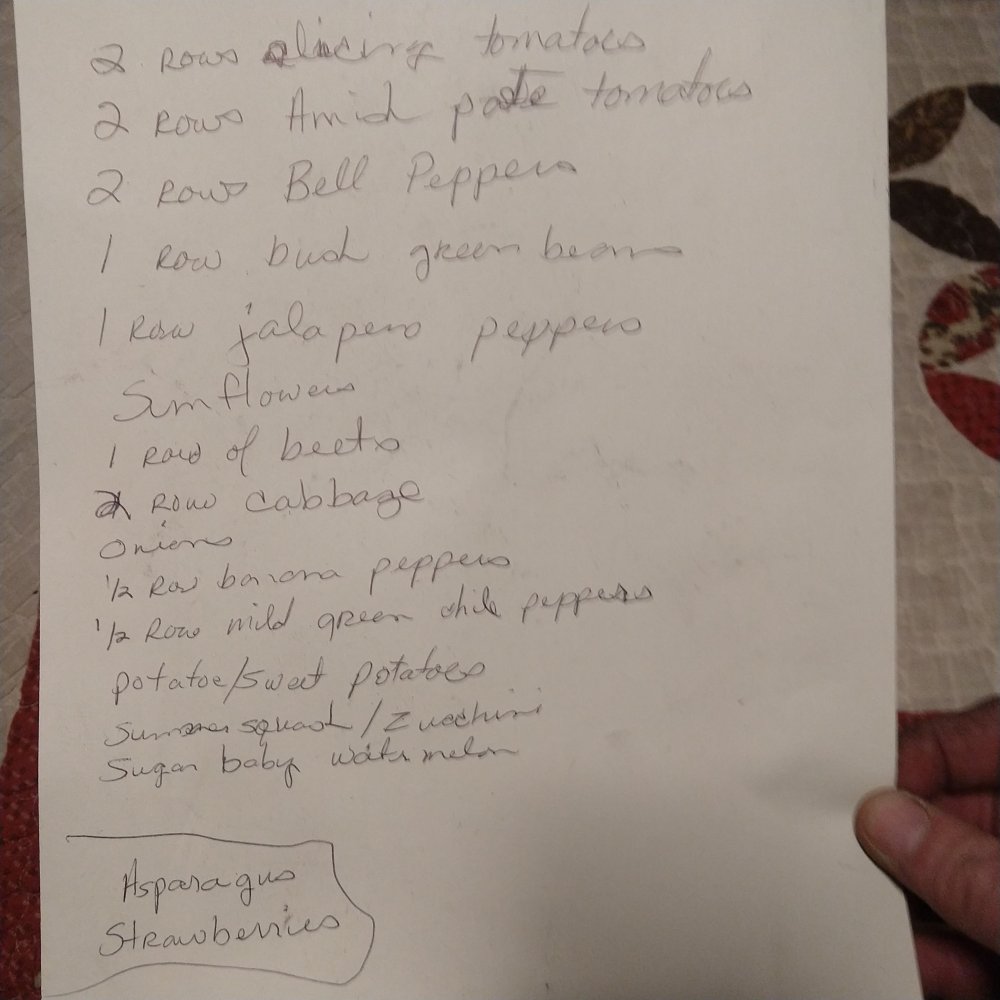 2 Rows slicing tomatoes
2 Rows Amish paste tomatoes
2 Rows Bell Peppers
1 Row bush green beans
1 Row jalapeno peppers
Sunflowers
1 Row of beets
Row cabbage
Onions
1/2 Row banana peppers
1/2 Row mild green chile peppers
potatoe/sweet potatoes
Summer squash/zucchini
Sugar baby watermelon
Asparagus
Strawberries